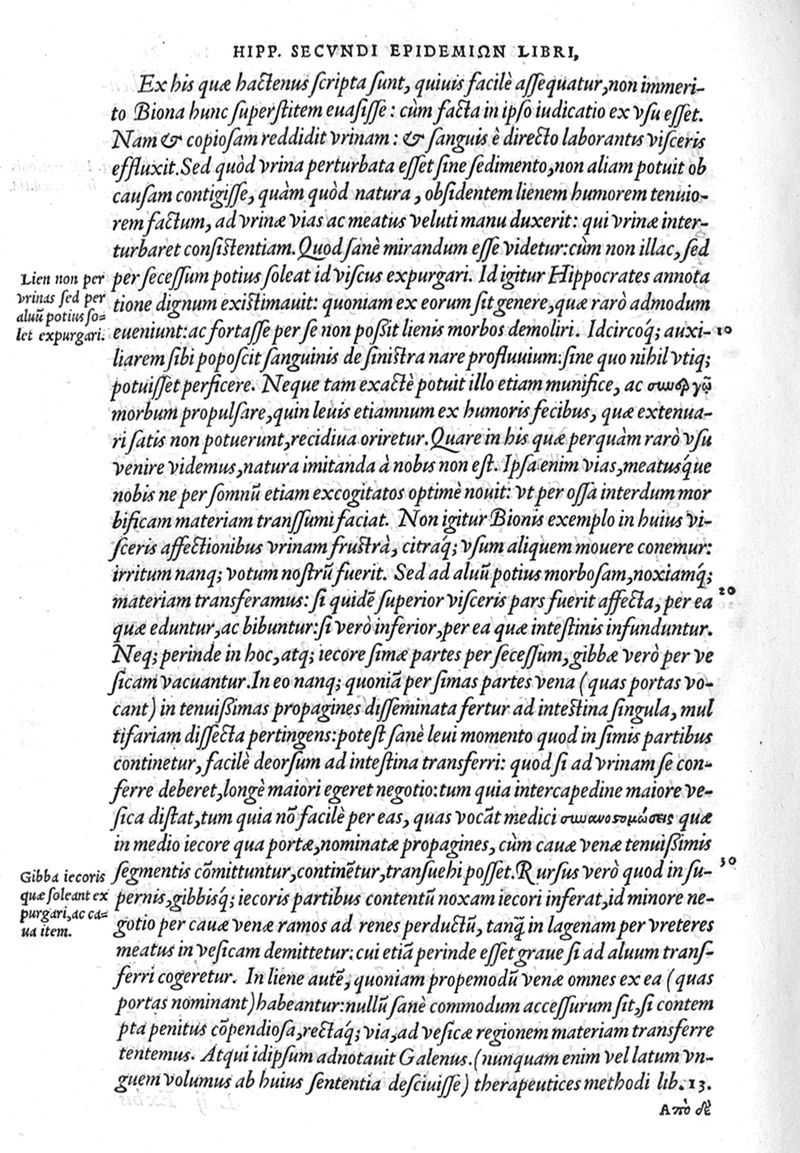 HIPP. SECVNDI EPIDEMIΩN LIBRI,
Ex his quæ hactenus ſcripta ſunt, quiuis facilè aſſequatur, non immeri-
to Biona hunc ſuperſtitem euaſiſſe: cùm facta in ipſo iudicatio ex vſu eſſet.
Nam & copioſam reddidit vrinam: & ſanguis è directo laborantis viſceris
effluxit. Sed quòd vrina perturbata eſſet ſine ſedimento, non aliam potuit ob
cauſam contigiſſe, quàm quòd natura, obſidentem lienem humorem tenuio-
rem factum, ad vrinæ vias ac meatus veluti manu duxerit: qui vrinæ inter-
turbaret conſiſtentiam. Quod ſanè mirandum eſſe videtur: cùm non illac, ſed
Lien non per
vrinas ſed per
aluũ potius ſo=
let expurgari.
per ſeceſſum potius ſoleat id viſcus expurgari. Id igitur Hippocrates annota
tione dignum existimauit: quoniam ex eorum ſit genere, quæ rarò admodum
eueniunt: ac fortaſſe per ſe non poßit lienis morbos demoliri. Idcircoq́; auxi- 10
liarem ſibi popoſcit ſanguinis de ſiniſtra nare profluuium: ſine quo nihil vtiq;
potuiſſet perficere. Neque tam exactè potuit illo etiam munifice, ac συνεργῷ
morbum propulſare, quin leuis etiamnum ex humoris fecibus, quæ extenua-
ri ſatis non potuerunt, recidiua oriretur. Quare in his quæ perquàm rarò vſu
venire videmus, natura imitanda à nobis non eſt. Ipſa enim vias, meatusq́ue
nobis ne per ſomnũ etiam excogitatos optimè nouit: vt per oſſa interdum mor
bificam materiam tranſſumi faciat. Non igitur Bionis exemplo in huius vi-
ſceris affectionibus vrinam fruſtrà, citraq́; vſum aliquem mouere conemur:
irritum nanq; votum noſtrũ fuerit. Sed ad aluũ potius morboſam, noxiamq́;
materiam transferamus: ſi quidẽ ſuperior viſceris pars fuerit affecta, per ea 20
quæ eduntur, ac bibuntur: ſi verò inferior, per ea quæ inteſtinis infunduntur.
Neq; perinde in hoc, atq; iecore ſimæ partes per ſeceſſum, gibbæ verò per ve
ſicam vacuantur. In eo nanq; quoniã per ſimas partes vena (quas portas vo-
cant) in tenuißimas propagines diſſeminata fertur ad inteſtina ſingula, mul
tifariam diſſecta pertingens: poteſt ſanè leui momento quod in ſimis partibus
continetur, facilè deorſum ad inteſtina transferri: quod ſi ad vrinam ſe con-
ferre deberet, longè maiori egeret negotio: tum quia intercapedine maiore ve-
ſica diſtat, tum quia nõ facilè per eas, quas vocãt medici συναναστομώσεις quæ
in medio iecore qua portæ, nominatæ propagines, cùm cauæ venæ tenuißimis
Gibba iecoris
quæ ſoleant ex
purgari, ac ca=
ua item.
ſegmentis cõmittuntur, continẽtur, tranſuehi poſſet. Rurſus verò quod in ſu- 30
pernis, gibbisq́; iecoris partibus contentũ noxam iecori inferat, id minore ne-
gotio per cauæ venæ ramos ad renes perductũ, tanq̃ in lagenam per vreteres
meatus in veſicam demittetur: cui etiã perinde eſſet graue ſi ad aluum tranſ-
ferri cogeretur. In liene autẽ, quoniam propemodũ venæ omnes ex ea (quas
portas nominant) habeantur: nullũ ſanè commodum acceſſurum ſit, ſi contem
pta penitus cõpendioſa, rectaq́; via, ad veſicæ regionem materiam transferre
tentemus. Atqui idipſum adnotauit Galenus. (nunquam enim vel latum vn-
guem volumus ab huius ſententia deſciuiſſe) therapeutices methodi lib. 13.
Ἀπὸ δὲ